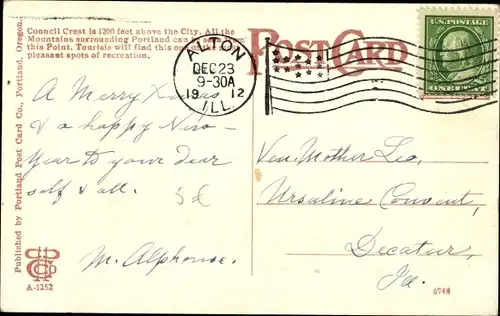 Council Crest is 1200 feet above the City. All the
Mountains surrounding Portland can be seen from
this Point. Tourists will find this one of the most
pleasant spots of recreation.
POST CARD
ALTON
DEC 23
9-30A
1912
ILL.
U.S. POSTAGE
ONE CENT
A Merry Xmas
& a happy New-
Year to your dear
self & all.
M. Alphonse.
Ven. Mother Leo,
Ursuline Convent,
Decatur,
Ill.
Published by Portland Post Card Co., Portland, Oregon.
A-1252
6748